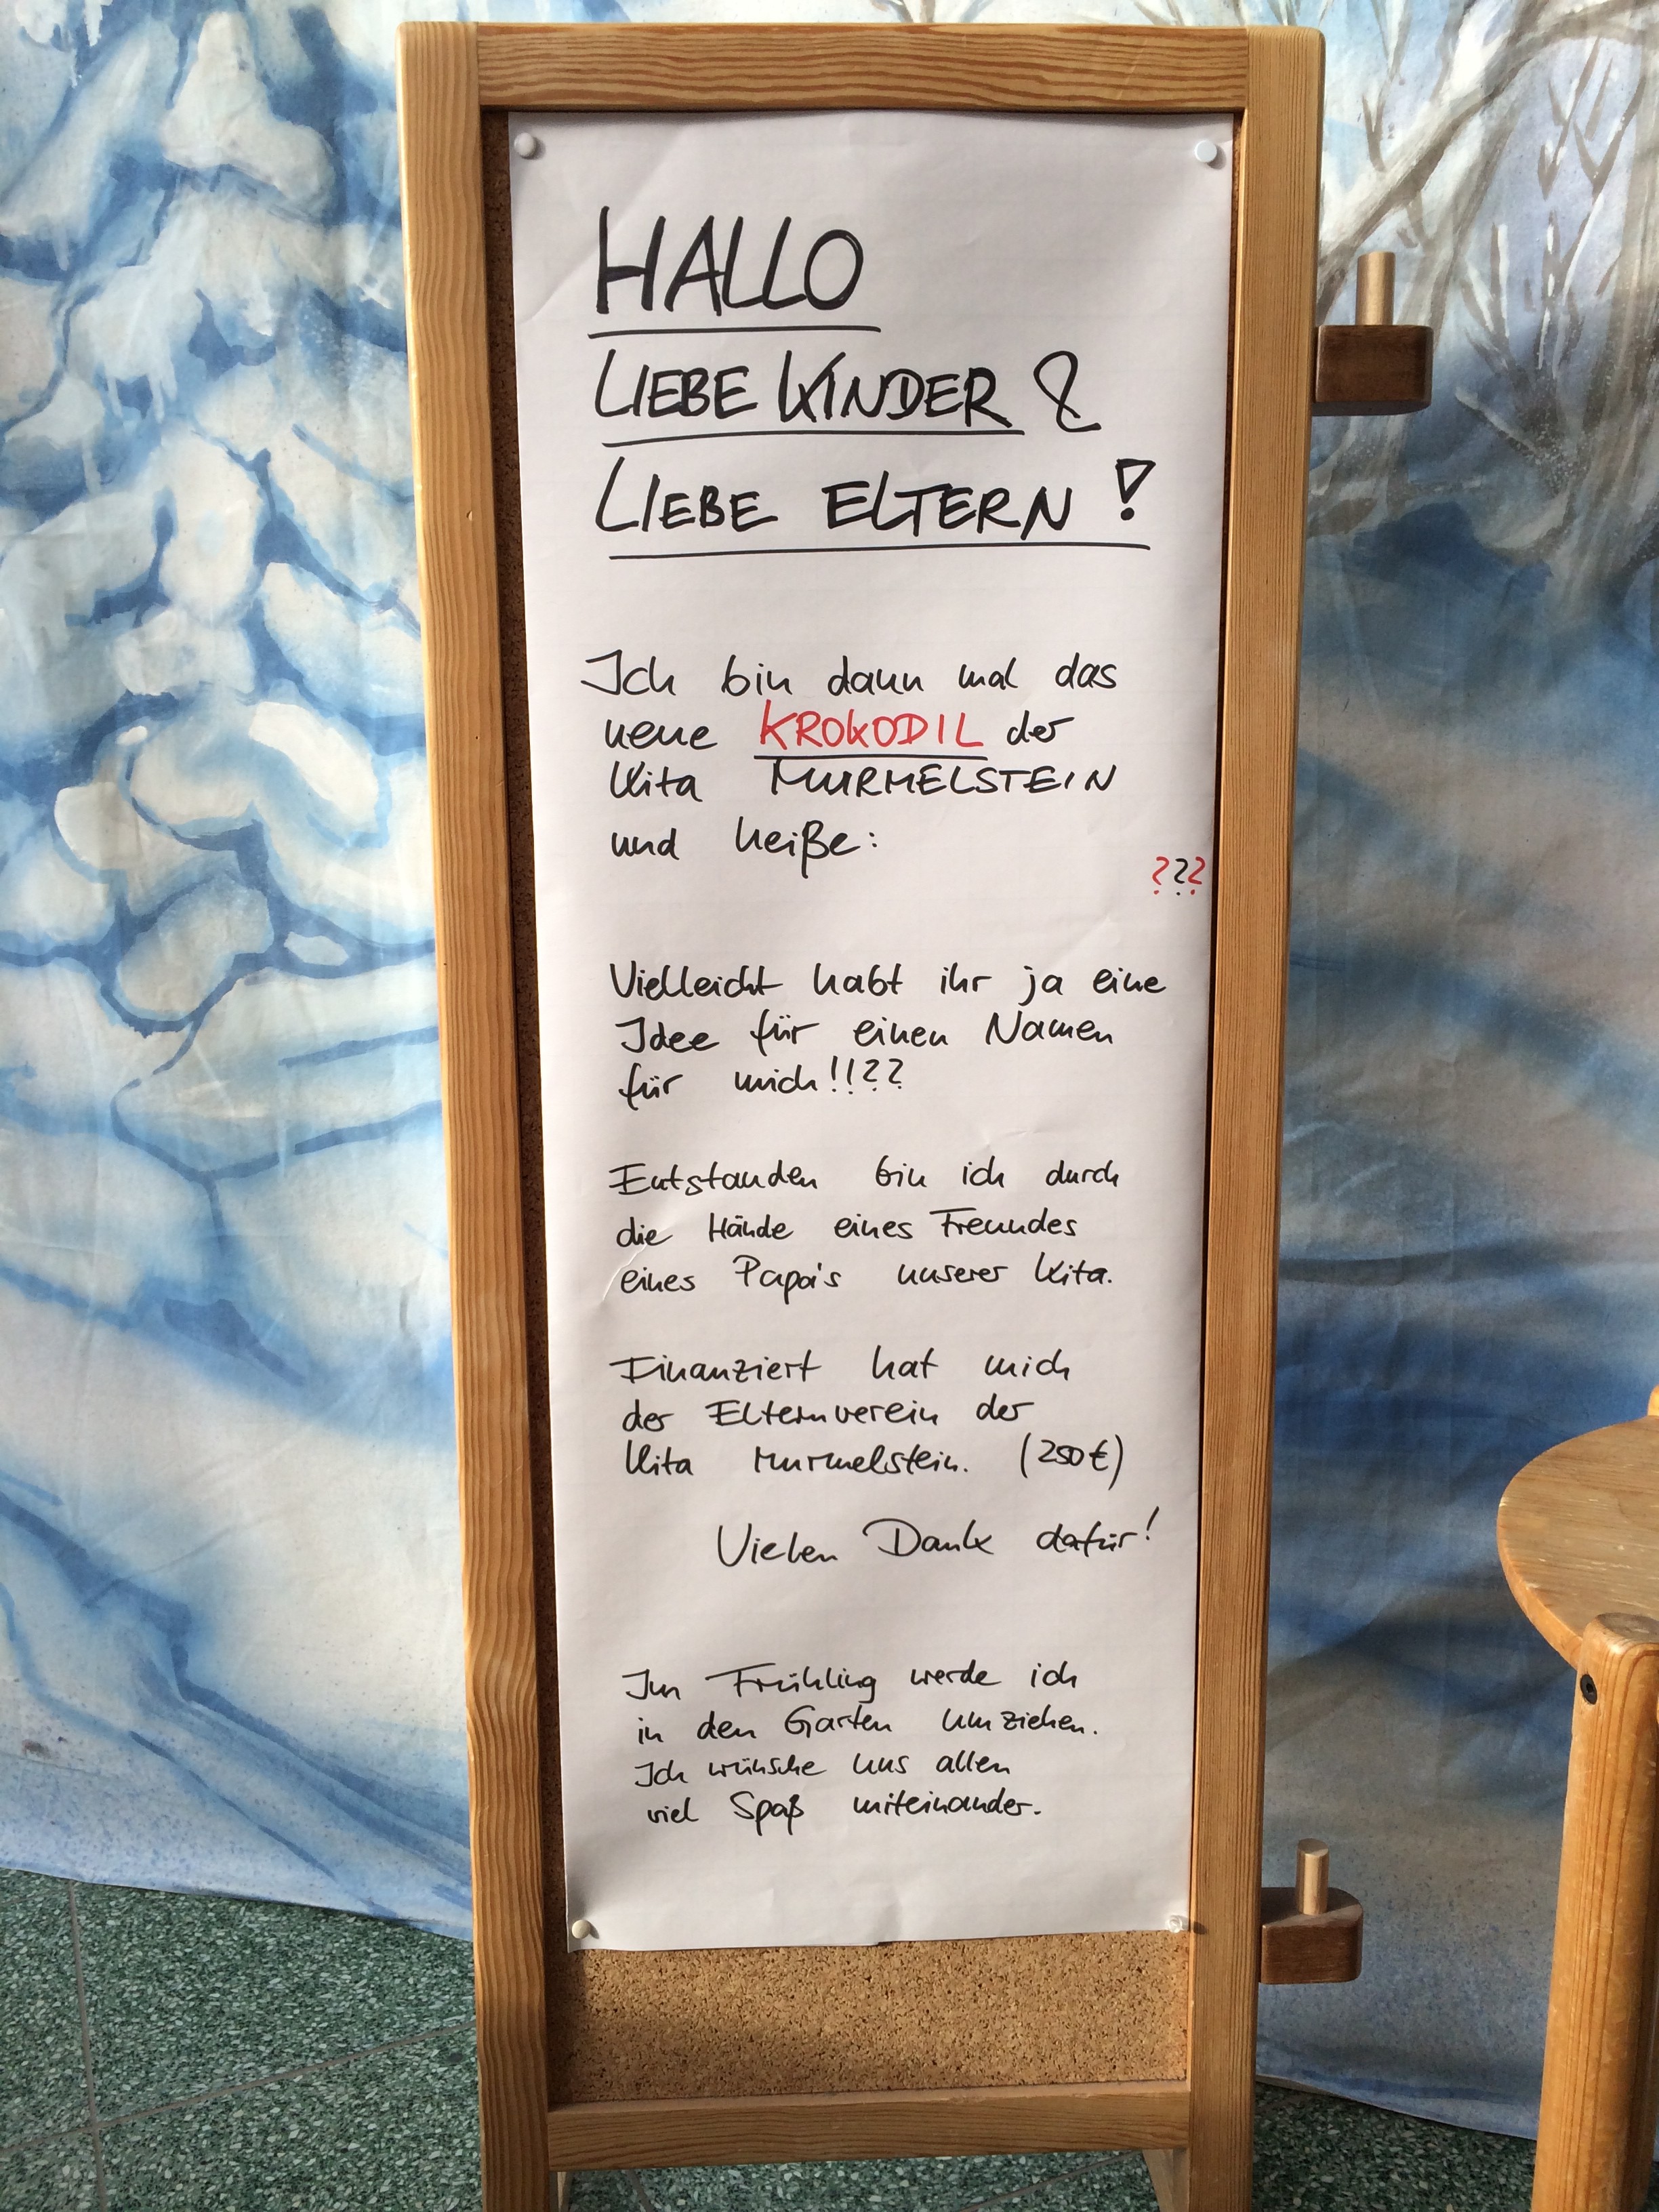 HALLO
LIEBE KINDER &
LIEBE ELTERN !
Ich bin dann mal das
neue KROKODIL der
Kita MURMELSTEIN
und heiße:
???
Vielleicht habt ihr ja eine
Idee für einen Namen
für mich!!??
Entstanden bin ich durch
die Hände eines Freundes
eines Papa's unserer Kita.
Finanziert hat mich
der Elternverein der
Kita Murmelstein. (250€)
Vielen Dank dafür!
Im Frühling werde ich
in den Garten umziehen.
Ich wünsche uns allen
viel Spaß miteinander.